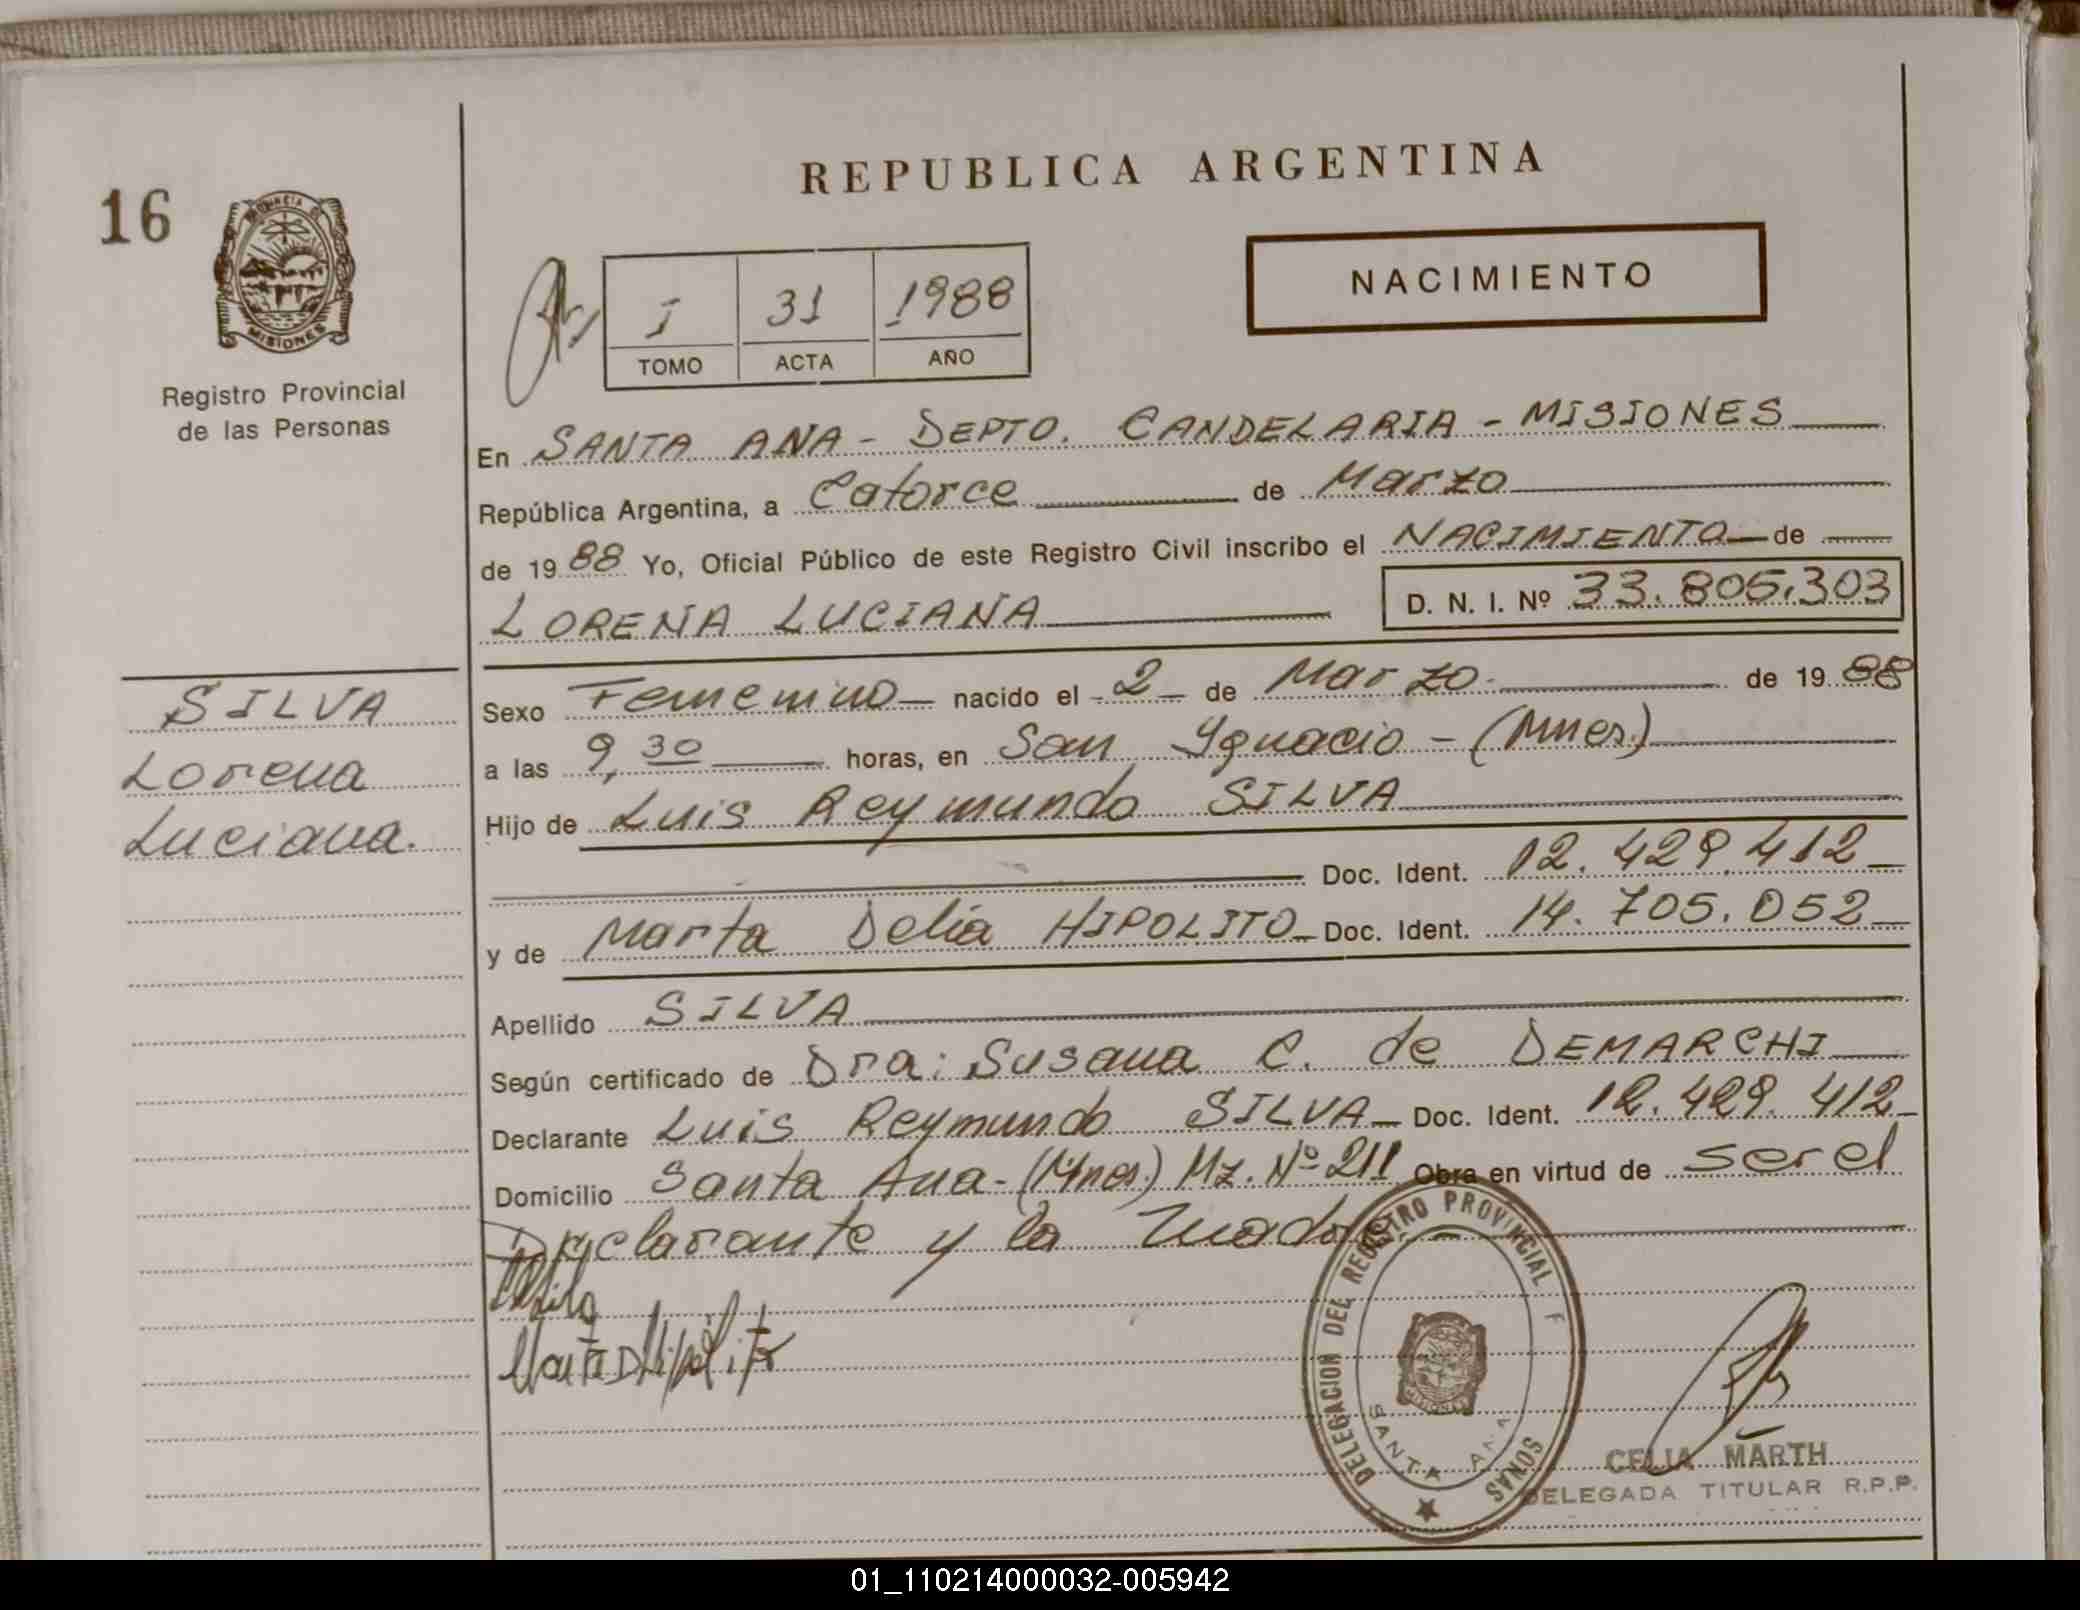 REPUBLICA ARGENTINA
16
PROVINCIA DE
MISIONES
Registro Provincial
de las Personas
I 31 1988
TOMO ACTA AÑO
NACIMIENTO
En SANTA ANA - DEPTO. CANDELARIA - MISIONES
República Argentina, a Catorce de Marzo
de 1988 Yo, Oficial Público de este Registro Civil inscribo el NACIMIENTO de
LORENA LUCIANA D. N. I. Nº 33.805.303
SILVA
Lorena
Luciana.
Sexo Femenino nacido el 2 de Marzo de 1988
a las 9,30 horas, en San Ygnacio - (Mnes.)
Hijo de Luis Reymundo SILVA
Doc. Ident. 12.429.412
y de Marta Delia HIPOLITO Doc. Ident. 14.705.052
Apellido SILVA
Según certificado de Dra: Susana C. de DEMARCHI
Declarante Luis Reymundo SILVA Doc. Ident. 12.429.412
Domicilio Santa Ana - (Mnes.) Mz. Nº 211 Obra en virtud de ser el
Declarante y la Madre
Marta D Hipolito
DELEGACION DEL REGISTRO PROVINCIAL
SONAS
SANTA ANA
MISIONES
CELIA MARTH
DELEGADA TITULAR R.P.P.
01_110214000032-005942